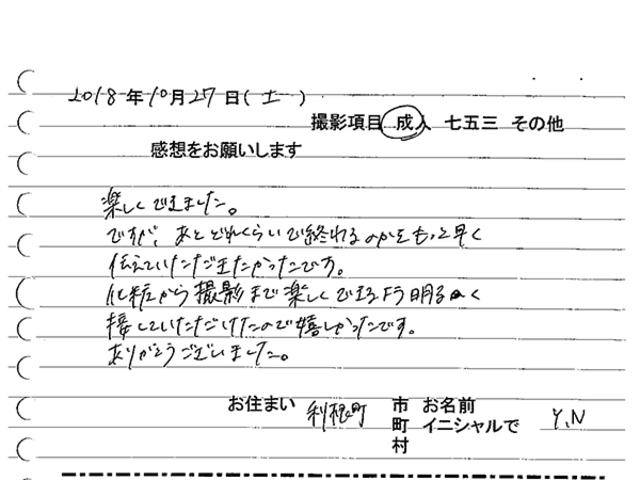 2018年10月27日(土)
撮影項目 成人 七五三 その他
感想をお願いします
楽しくできました。
ですが、あとどれくらいで終わるのかをもっと早く
伝えていただきたかったです。
化粧から撮影まで楽しくできるよう明るく
接していただけたので嬉しかったです。
ありがとうございました。
お住まい 利根町 市町村 お名前 イニシャルで Y.N